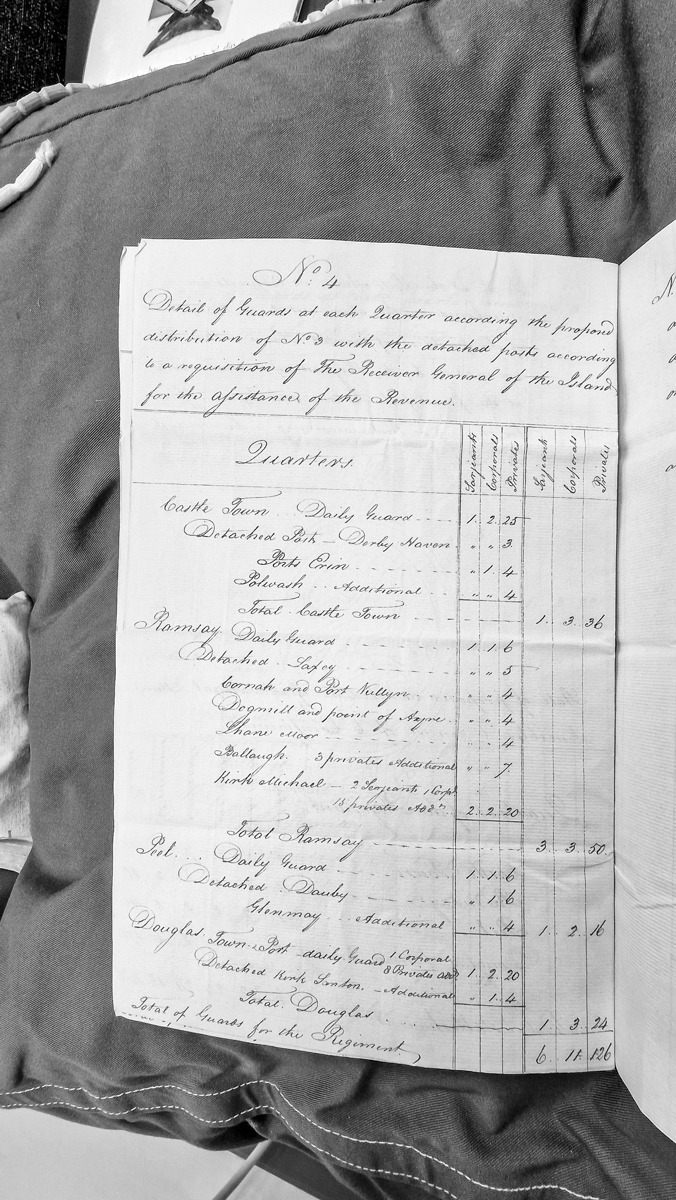 No. 4
Detail of Guards at each Quarter according the proposed
distribution of No 3 with the detached posts according
to a requisition of The Receiver General of the Island
for the assistance of the Revenue.
Quarters. Serjeants Corporals Privates Serjeants Corporals Privates
Castle Town .. Daily Guard 1. 2. 25
Detached Post - Derby Haven " " 3.
Ports Erin 1. 4
Polwash .. Additional " " 4
Total Castle Town 1. 3. 36
Ramsay. Daily Guard 1. 1. 6
Detached. Laxey " " 5
Cornah and Port Vullyn " " 4
Dogmill and point of Ayre " " 4
Lhane Moor " " 4
Ballaugh. 3 privates Additional " " 7.
Kirk Michael - 2 Serjeants 1 Corpl
15 privates Addn 2. 2. 20
Total Ramsay 3. 3. 50.
Peel... Daily Guard 1. 1. 6
Detached. Dauby " 1. 6
Glenmay ... Additional " " 4 1. 2. 16
Douglas. Town & Port - daily Guard 1 Corporal
8 Privates add 1. 2. 20
Detached Kirk Santon. - Additional " 1. 4
Total. Douglas 1 3. 24
Total of Guards for the Regiment 6. 11. 126